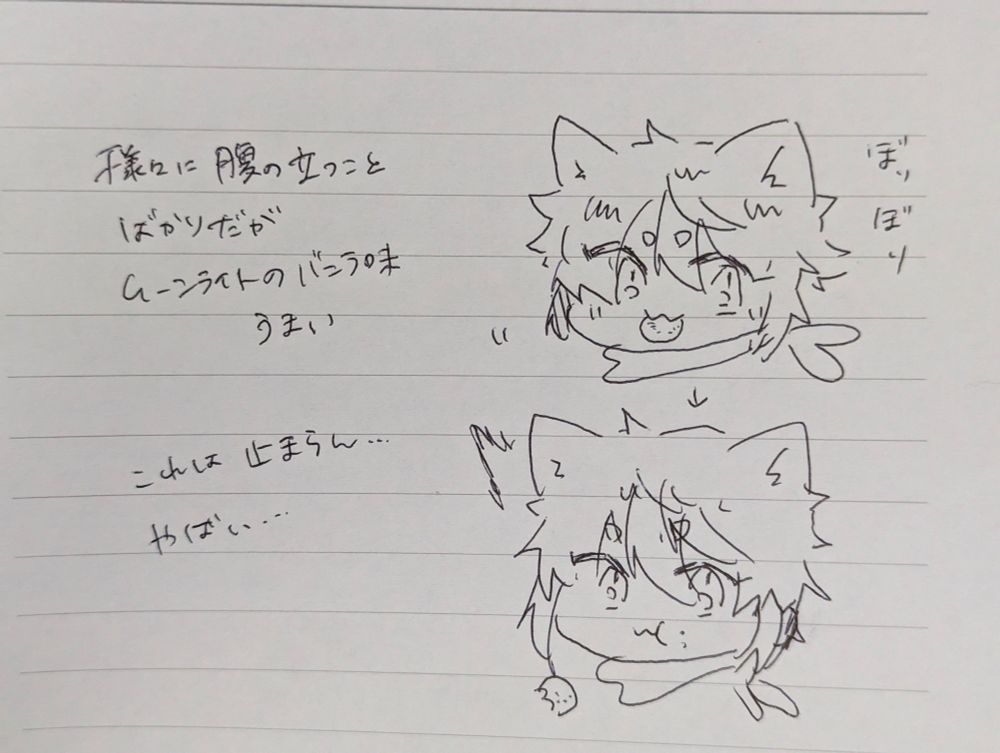 様々に腹の立つこと
ばかりだが
ムーンライトのバニラ味
うまい
ぼり
ぼり
これは止まらん…
やばい…